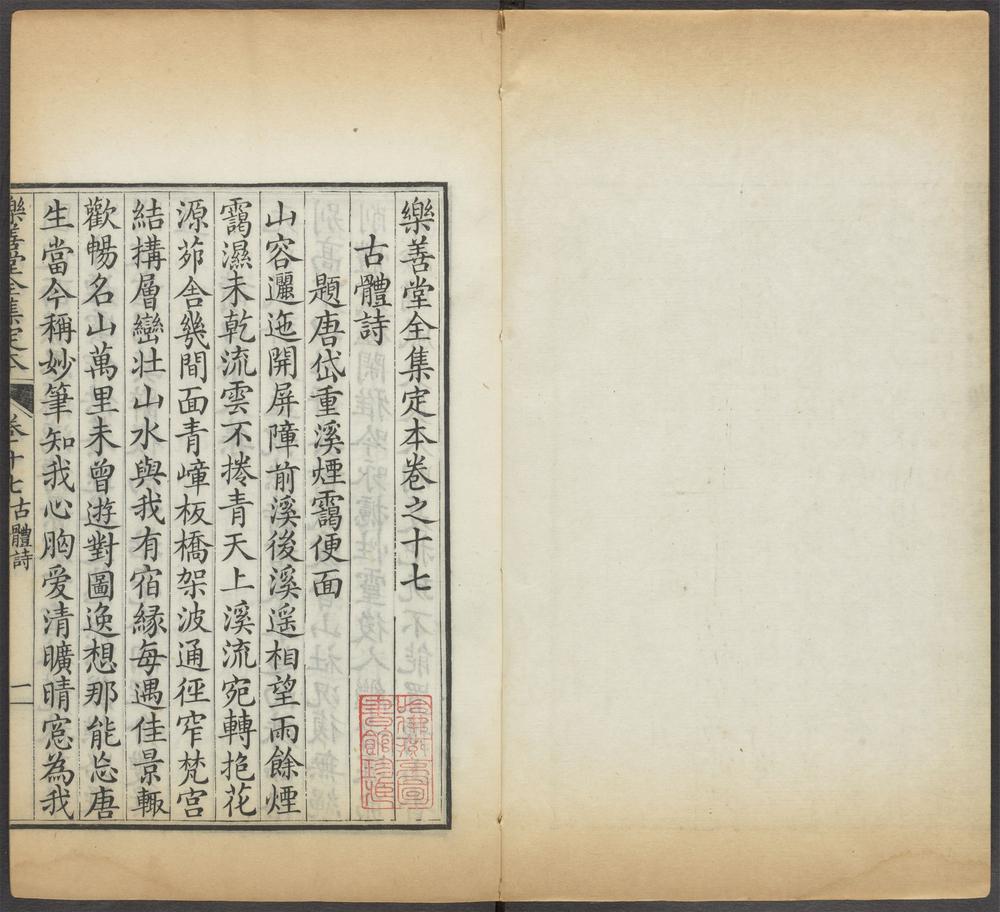 樂善堂全集定本卷之十七
古體詩
題唐岱重溪煙靄便面
山容邐迤開屏障前溪後溪遥相望雨餘煙
靄濕未乾流雲不捲青天上溪流宛轉抱花
源茆舍幾間面青嶂板橋架波通徑窄梵宫
結搆層巒壯山水與我有宿緣每遇佳景輙
歡暢名山萬里未曾遊對圖逸想那能忘唐
生當今稱妙筆知我心胸愛清曠晴窓為我
樂善堂全集定本
卷十七古體詩
一
哈佛燕京圖書館珍藏